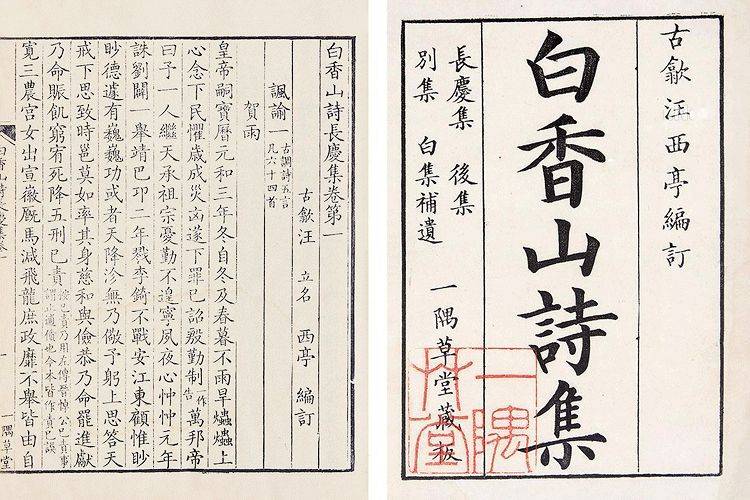 古歙汪西亭編訂
白香山詩集
長慶集 後集
別集 白集補遺
一隅草堂藏板
一隅草堂
白香山詩長慶集卷第一
古歙汪 立名 西亭 編訂
諷諭一 古調詩五言 凡六十四首
賀雨
皇帝嗣寶曆元和三年冬自冬及春暮不雨旱爞爞上
心念下民懼歲成災凶遂下罪己詔殷勤制一作告萬邦帝
曰予一人繼天承祖宗憂勤不遑寧夙夜心忡忡元年
誅劉闢一舉靖巴卭二年戮李錡不戰安江東顧惟眇
眇德遽有巍巍功或者天降沴無乃儆予躬上思答天
戒下思致時邕莫如率其身慈和與儉恭乃命罷進獻
乃命賑飢窮宥死降五刑已責按已責乃用左傳晉悼公已責事謂止逋債也今本皆作責己誤
寬三農宮女出宣徽廄馬減飛龍庶政靡不舉皆由自
一隅草堂